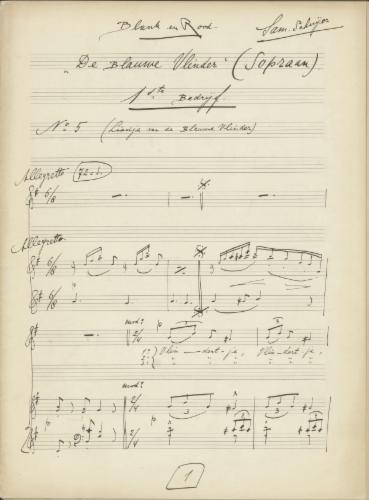 Blank en Rood
Sam. Schuijer
"De Blauwe Vlinder" (Sopraan)
1ste Bedrijf
No 5 (Liedje van de Blauwe Vlinder)
Allegretto 72 =
Allegretto
mod?
p
1e) Vlin - der - tje, Vlin - der - tje,
2e) " " " " " "
mod?
p
3 3
1